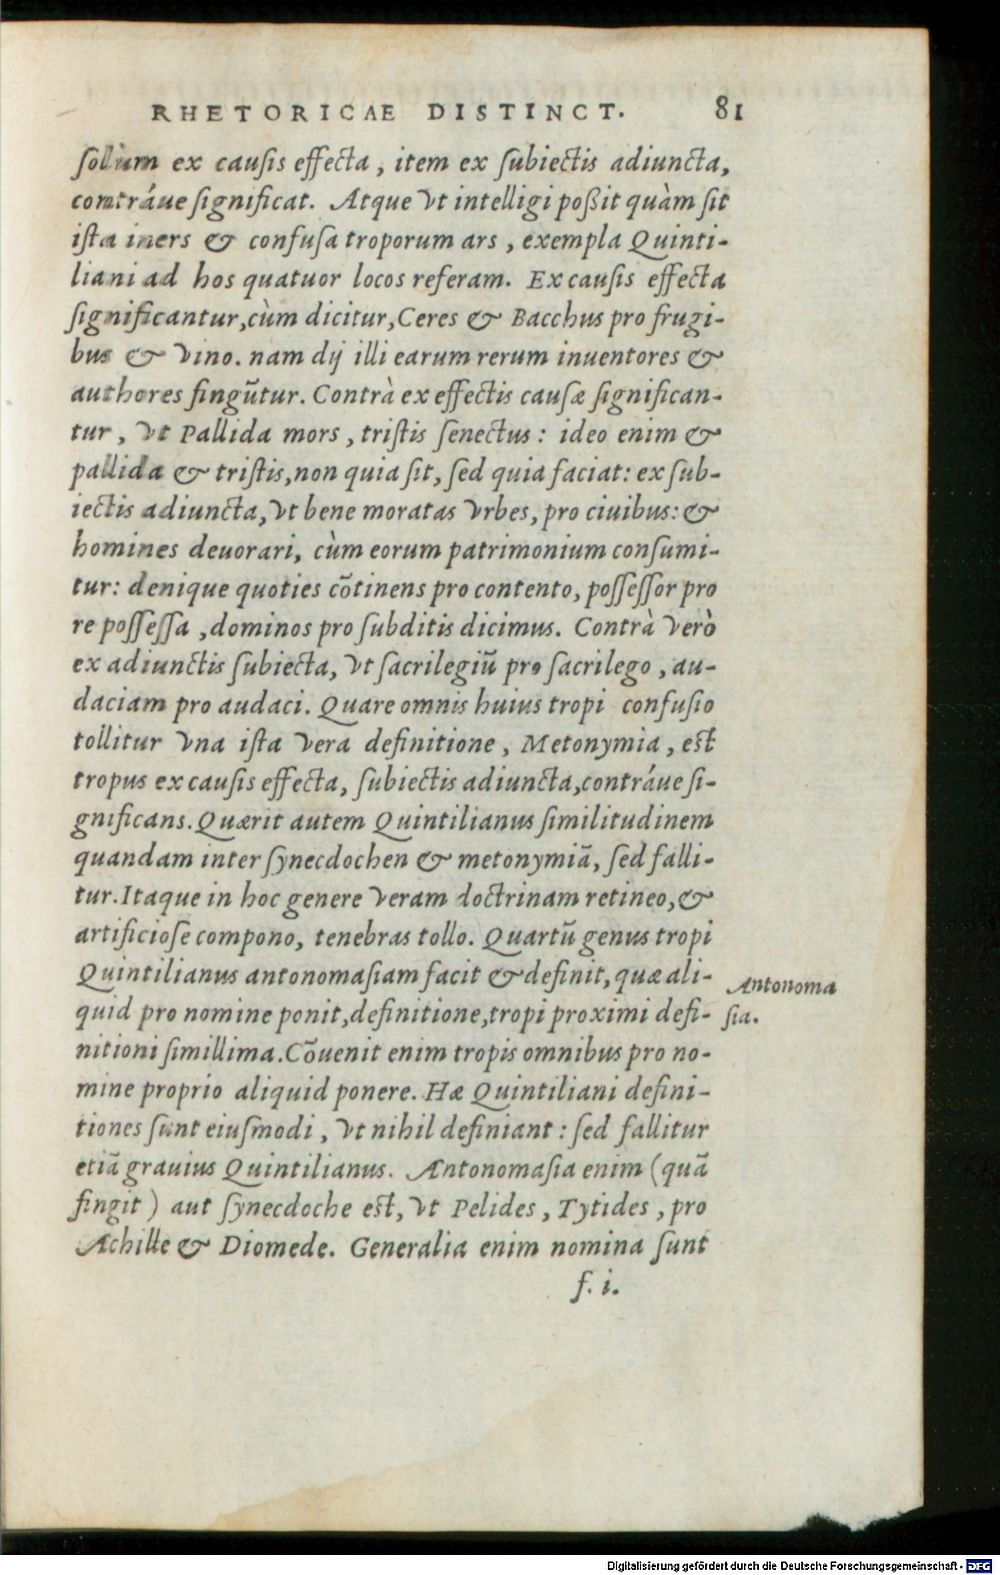 RHETORICAE DISTINCT. 81
solùm ex causis effecta, item ex subiectis adiuncta,
contráue significat. Atque vt intelligi poßit quàm sit
ista iners & confusa troporum ars, exempla Quinti-
liani ad hos quatuor locos referam. Ex causis effecta
significantur, cùm dicitur, Ceres & Bacchus pro frugi-
bus & vino. nam dij illi earum rerum inuentores &
authores fingūtur. Contrà ex effectis causæ significan-
tur, vt Pallida mors, tristis senectus: ideo enim &
pallida & tristis, non quia sit, sed quia faciat: ex sub-
iectis adiuncta, vt bene moratas vrbes, pro ciuibus: &
homines deuorari, cùm eorum patrimonium consumi-
tur: denique quoties cōtinens pro contento, possessor pro
re possessa, dominos pro subditis dicimus. Contrà verò
ex adiunctis subiecta, vt sacrilegiū pro sacrilego, au-
daciam pro audaci. Quare omnis huius tropi confusio
tollitur vna ista vera definitione, Metonymia, est
tropus ex causis effecta, subiectis adiuncta, contráue si-
gnificans. Quærit autem Quintilianus similitudinem
quandam inter synecdochen & metonymiā, sed falli-
tur. Itaque in hoc genere veram doctrinam retineo, &
artificiose compono, tenebras tollo. Quartū genus tropi
Quintilianus antonomasiam facit & definit, quæ ali-
Antonoma
quid pro nomine ponit, definitione, tropi proximi defi-
sia.
nitioni simillima. Cōuenit enim tropis omnibus pro no-
mine proprio aliquid ponere. Hæ Quintiliani defini-
tiones sunt eiusmodi, vt nihil definiant: sed fallitur
etiā grauius Quintilianus. Antonomasia enim (quā
fingit) aut synecdoche est, vt Pelides, Tytides, pro
Achille & Diomede. Generalia enim nomina sunt
f. i.
Digitalisierung gefördert durch die Deutsche Forschungsgemeinschaft - DFG